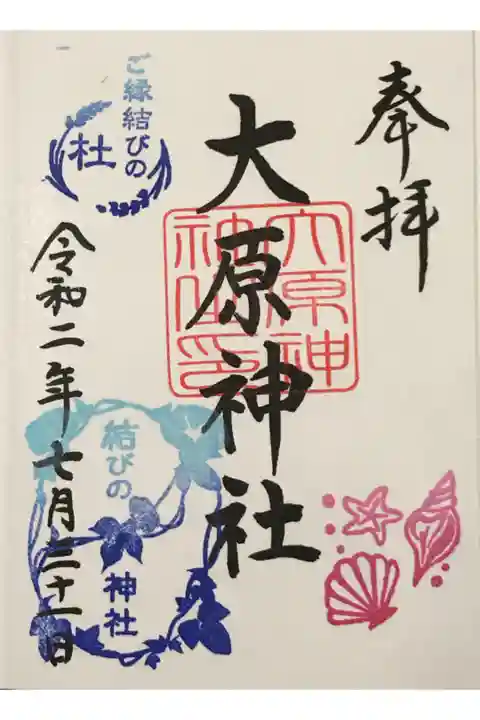 奉拝
大原神社
大原神社印
ご縁結びの
杜
令和二年七月三十一日
結びの
神社